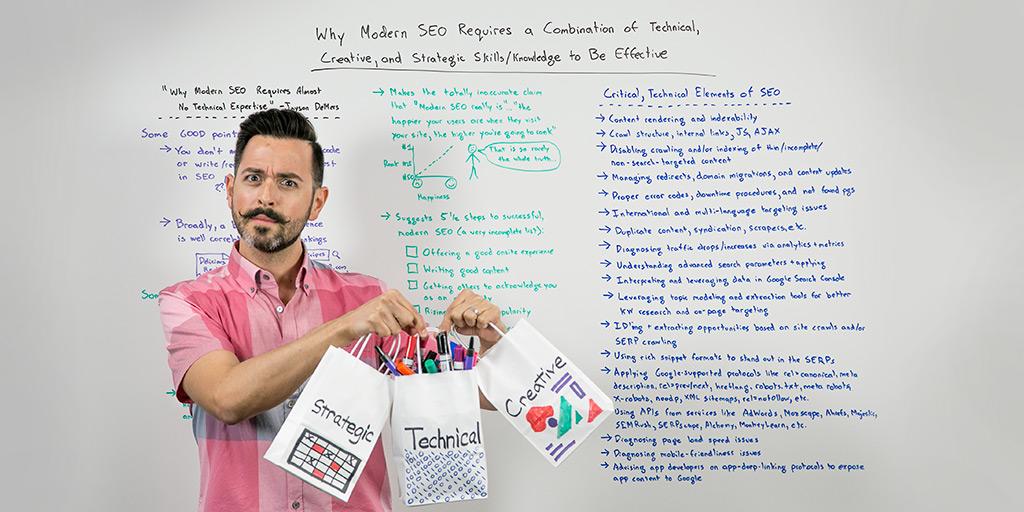 Why Modern SEO Requires a Combination of Technical,
Creative, and Strategic Skills/Knowledge to Be Effective
"Why Modern SEO Requires Almost
No Technical Expertise" - Jayson DeMers
Some GOOD point
→ You don't
or write/re
in SEO
??
→ Broadly, a
is well correl
Delicious
Makes the totally inaccurate claim
that "Modern SEO really is"..."the
happier your users are when they visit
your site, the higher you're going to rank"
#1
Rank
#50
Happiness
That is so rarely
the whole truth...
→ Suggests 5 1/2 steps to successful,
modern SEO (a very incomplete list):
Offering a good onsite experience
Writing good content
Getting others to acknowledge you
as an
Critical, Technical Elements of SEO
→ Content rendering and indexability
→ Crawl structure, internal links, JS, AJAX
→ Disabling crawling and/or indexing of thin/incomplete/
non-search-targeted content
→ Managing redirects, domain migrations, and content updates
→ Proper error codes, downtime procedures, and not found pgs
→ International and multi-language targeting issues
→ Duplicate content, syndication, scrapers, etc.
→ Diagnosing traffic drops/increases via analytics + metrics
→ Understanding advanced search parameters + applying
→ Interpreting and leveraging data in Google Search Console
→ Leveraging topic modeling and extraction tools for better
KW research and on-page targeting
→ ID'ing + extracting opportunities based on site crawls and/or
SERP crawling
→ Using rich snippet formats to stand out in the SERPs
→ Applying Google-supported protocols like rel=canonical, meta
description, rel=prev/next, hreflang, robots.txt, meta robots,
x-robots, noodp, XML sitemaps, rel=nofollow, etc.
Using APIs from services like AdWords, Mozscape, Ahrefs, Majestic,
SEMRush, SERPscape, Alchemy, MonkeyLearn, etc.
→ Diagnosing page load speed issues
→ Diagnosing mobile-friendliness issues
→ Advising app developers on app-deep-linking protocols to expose
app content to Google
Strategic
Technical
Creative